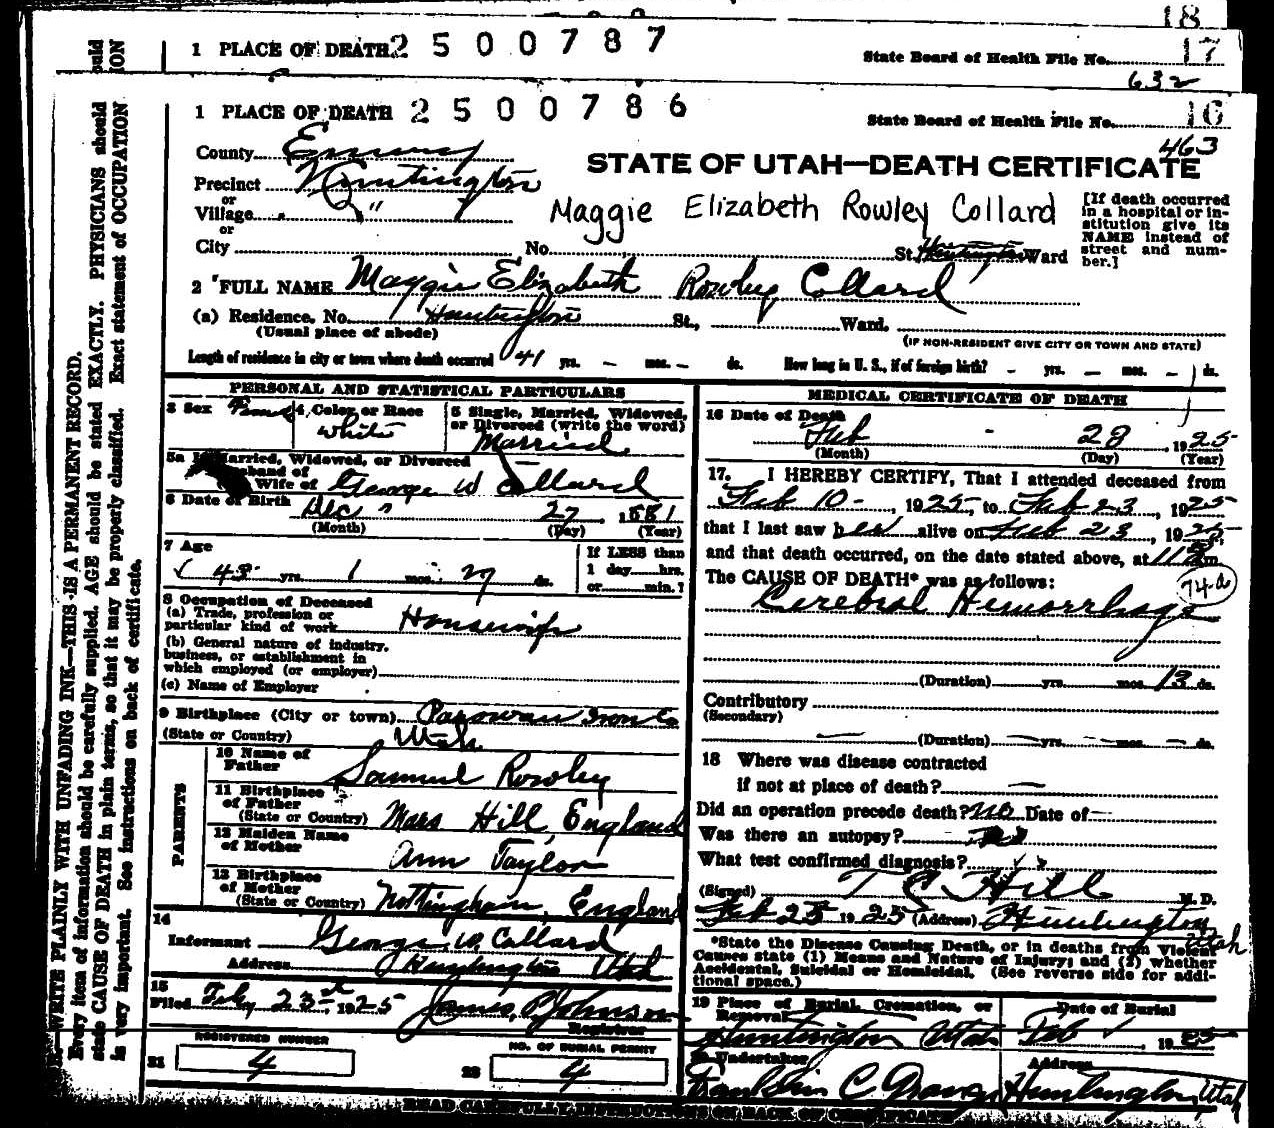 18
1 PLACE OF DEATH 2 5 0 0 7 8 7 State Board of Health File No. 17
632
1 PLACE OF DEATH 2 5 0 0 7 8 6 State Board of Health File No. 16
463
County Emery
STATE OF UTAH—DEATH CERTIFICATE
Precinct Huntington
or
Village "
or
Maggie Elizabeth Rowley Collard
[If death occurred
in a hospital or in-
stitution give its
NAME instead of
street and num-
ber.]
City No. St. Huntington Ward
2 FULL NAME Maggie Elizabeth Rowley Collard
(a) Residence, No. Huntington St., Ward.
(Usual place of abode) (IF NON-RESIDENT GIVE CITY OR TOWN AND STATE)
Length of residence in city or town where death occurred 41 yrs. – mos. – ds. How long in U. S., if of foreign birth? - yrs. – mos. – ds.
PERSONAL AND STATISTICAL PARTICULARS
3 Sex 4 Color or Race white
5 Single, Married, Widowed,
or Divorced (write the word)
Married
5a If Married, Widowed, or Divorced
Husband of
Wife of George W Collard
6 Date of Birth Dec 27, 1881
(Month) (Day) (Year)
7 Age
43 yrs. 1 mos. 27 ds.
If LESS than
1 day hrs.
or min.?
8 Occupation of Deceased
(a) Trade, profession or
particular kind of work Housewife
(b) General nature of industry,
business, or establishment in
which employed (or employer)
(c) Name of Employer
9 Birthplace (City or town) Parowan Iron Co
(State or Country) Utah
PARENTS
10 Name of
Father Samuel Rowley
11 Birthplace
of Father
(State or Country) Mars Hill, England
12 Maiden Name
of Mother Ann Taylor
13 Birthplace
of Mother
(State or Country) Nottingham, England
14
Informant George W. Collard
Address Huntington Utah
15
Filed Feby 25, 1925 James P Johnson
Registrar
REGISTERED NUMBER
21 4
NO. OF BURIAL PERMIT
22 4
MEDICAL CERTIFICATE OF DEATH
16 Date of Death
Feb - 23, 1925
(Month) (Day) (Year)
17. I HEREBY CERTIFY, That I attended deceased from
Feb 10 -, 1925, to Feb 23, 1925
that I last saw her alive on Feb 23, 1925,
and that death occurred, on the date stated above, at m.
The CAUSE OF DEATH* was as follows:
74-a
Cerebral Hemorrhage
(Duration) yrs. mos. 13 ds.
Contributory
(Secondary)
— (Duration) — yrs. – mos. – ds.
18 Where was disease contracted
if not at place of death? —
Did an operation precede death? No Date of –
Was there an autopsy? No
What test confirmed diagnosis?
(Signed) T C Hill M. D.
Feb 25 1925 (Address) Huntington
Utah
*State the Disease Causing Death, or in deaths from Violent
Causes state (1) Means and Nature of Injury; and (2) whether
Accidental, Suicidal or Homicidal. (See reverse side for addi-
tional space.)
19 Place of Burial, Cremation, or
Removal
Huntington Utah
Date of Burial
Feb , 1925
20 Undertaker Address
Huntington, Utah
READ CAREFULLY INSTRUCTIONS ON BACK OF CERTIFICATE
WRITE PLAINLY WITH UNFADING INK—THIS IS A PERMANENT RECORD.
Every item of information should be carefully supplied. AGE should be stated EXACTLY. PHYSICIANS should
state CAUSE OF DEATH in plain terms, so that it may be properly classified. Exact statement of OCCUPATION
is very important. See instructions on back of certificate.